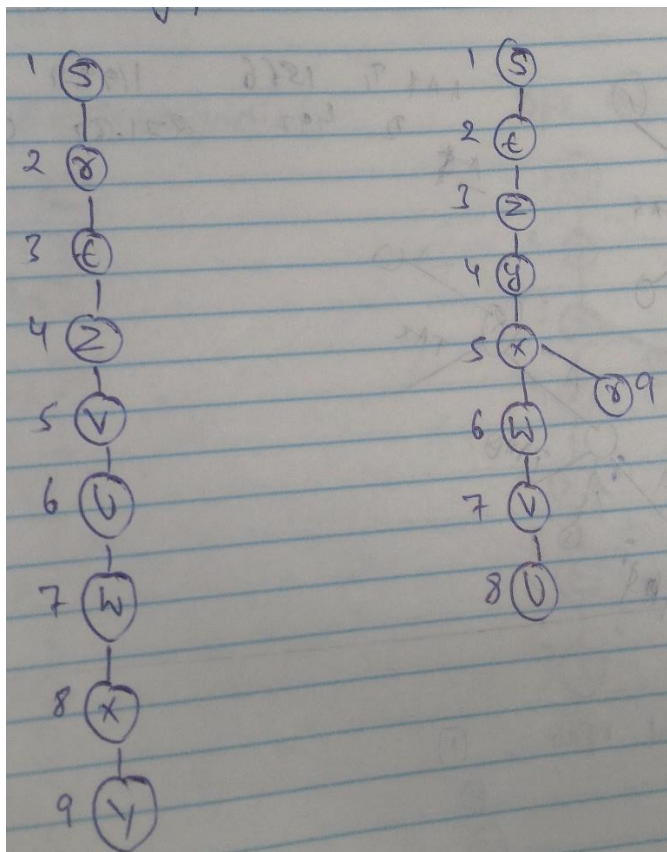 1 S
2 r
3 t
4 Z
5 V
6 U
7 W
8 X
9 Y
1 S
2 t
3 Z
4 y
5 X
r 9
6 W
7 V
8 U